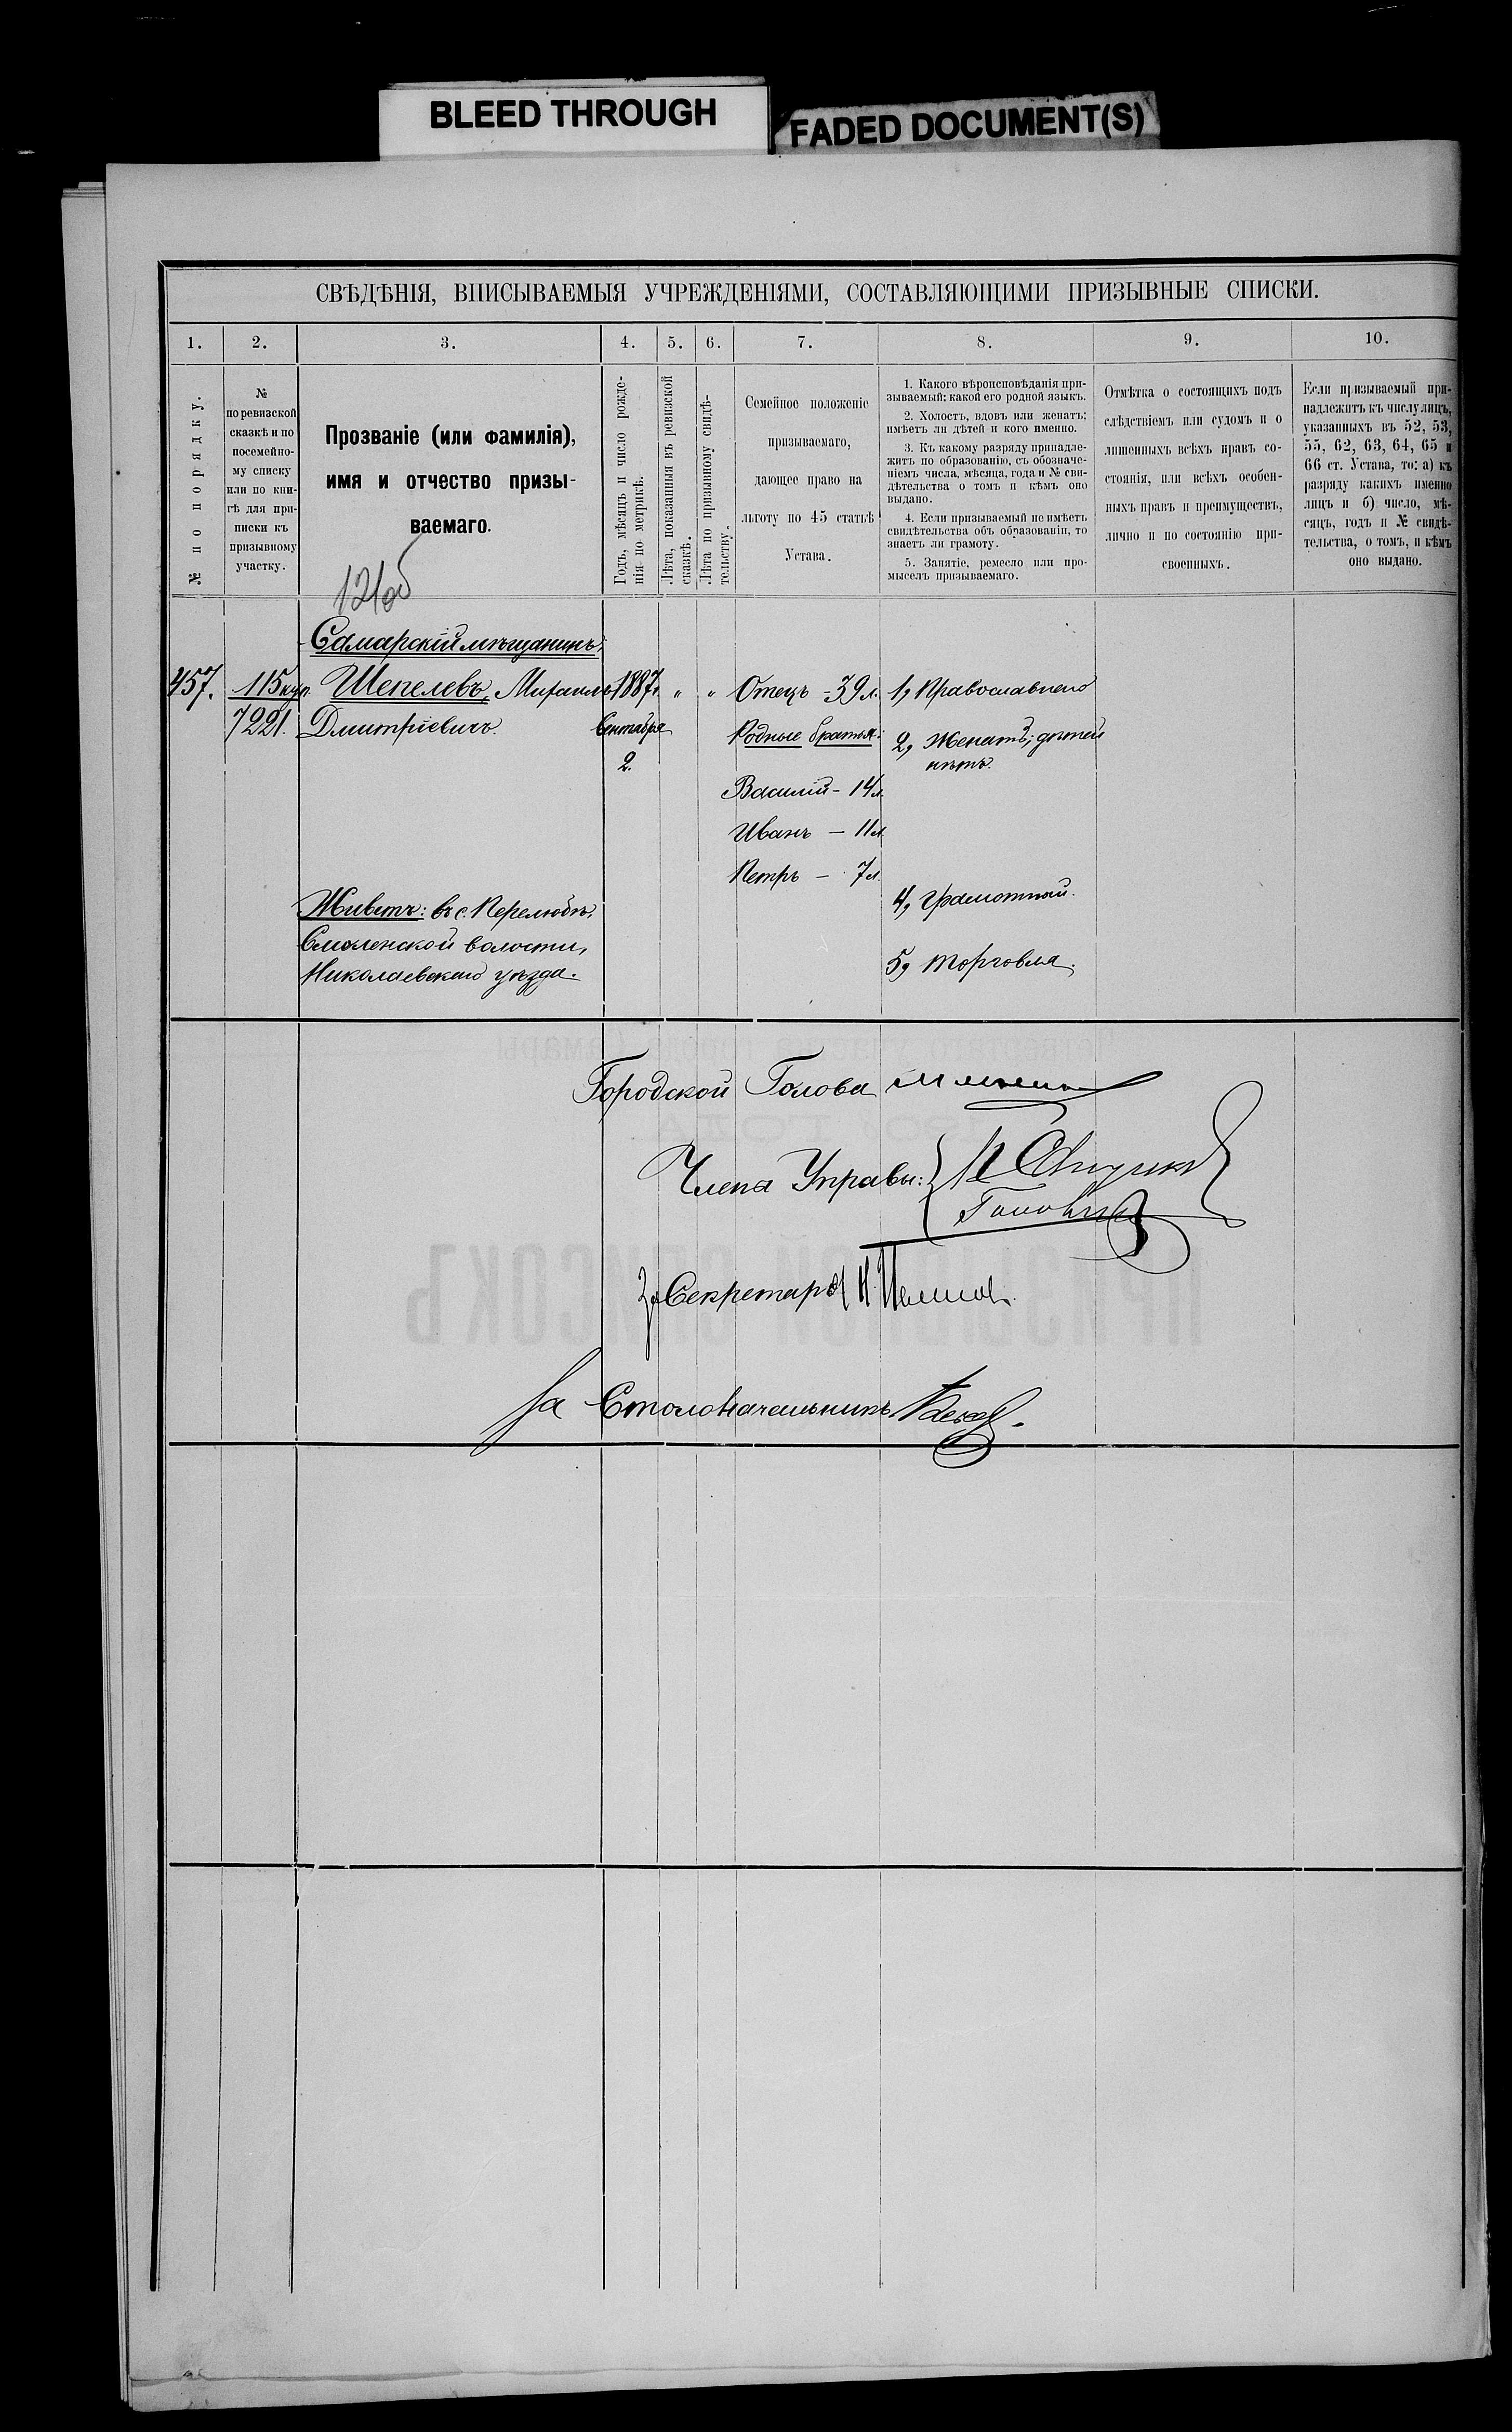 BLEED THROUGH
FADED DOCUMENT(S)
СВѢДѢНІЯ, ВПИСЫВАЕМЫЯ УЧРЕЖДЕНІЯМИ, СОСТАВЛЯЮЩИМИ ПРИЗЫВНЫЕ СПИСКИ.
1. 2. 3. 4. 5. 6. 7. 8. 9. 10.
№ по порядку.
№
по ревизской
сказкѣ и по
посемейно-
му списку
или по кни-
гѣ для при-
писки къ
призывному
участку.
Прозваніе (или фамилія),
имя и отчество призы-
ваемаго.
Годъ, мѣсяцъ и число рожде-
нія по метрикѣ.
Лѣта, показанныя въ ревизской
сказкѣ.
Лѣта по призывному свидѣ-
тельству.
Семейное положеніе
призываемаго,
дающее право на
льготу по 45 статьѣ
Устава.
1. Какого вѣроисповѣданія при-
зываемый: какой его родной языкъ.
2. Холостъ, вдовъ или женатъ:
имѣетъ ли дѣтей и кого именно.
3. Къ какому разряду принадле-
житъ по образованію, съ обозначе-
ніемъ числа, мѣсяца, года и № сви-
дѣтельства о томъ и кѣмъ оно
выдано.
4. Если призываемый не имѣетъ
свидѣтельства объ образованіи, то
знаетъ ли грамоту.
5. Занятіе, ремесло или про-
мыселъ призываемаго.
Отмѣтка о состоящихъ подъ
слѣдствіемъ или судомъ и о
лишенныхъ всѣхъ правъ со-
стоянія, или всѣхъ особен-
ныхъ правъ и преимуществъ,
лично и по состоянію при-
своенныхъ.
Если призываемый при-
надлежитъ къ числу лицъ,
указанныхъ въ 52, 53,
55, 62, 63, 64, 65 и
66 ст. Устава, то: а) къ
разряду какихъ именно
лицъ и б) число, мѣ-
сяцъ, годъ и № свидѣ-
тельства, о томъ, и кѣмъ
оно выдано.
121об
Самарскій мѣщанинъ:
457. 115 куп. Шепелевъ, Михаилъ 1887г. " " Отецъ - 39 л. 1, Православнаго
7221. Дмитріевичъ. Сентября Родные братья: 2, Женатъ; дѣтей
2. нѣтъ.
Василій - 14 л.
Иванъ - 11 л.
Петръ - 7 л.
Живетъ: въ с. Перелюбѣ, 4, Грамотный.
Смоленской волости,
Николаевскаго уѣзда. 5, Торговля.
Городской Голова
Члена Управы:
За Секретаря
За Столоначальникъ